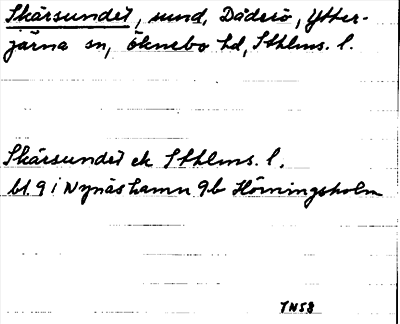 Skärsundet, sund, Däderö, Ytter-
järna sn, Öknebo hd, Sthlms. l.
Skärsundet ek Sthlms. l.
bl. 9 i Nynäshamn 9b Hörningsholm
TN58